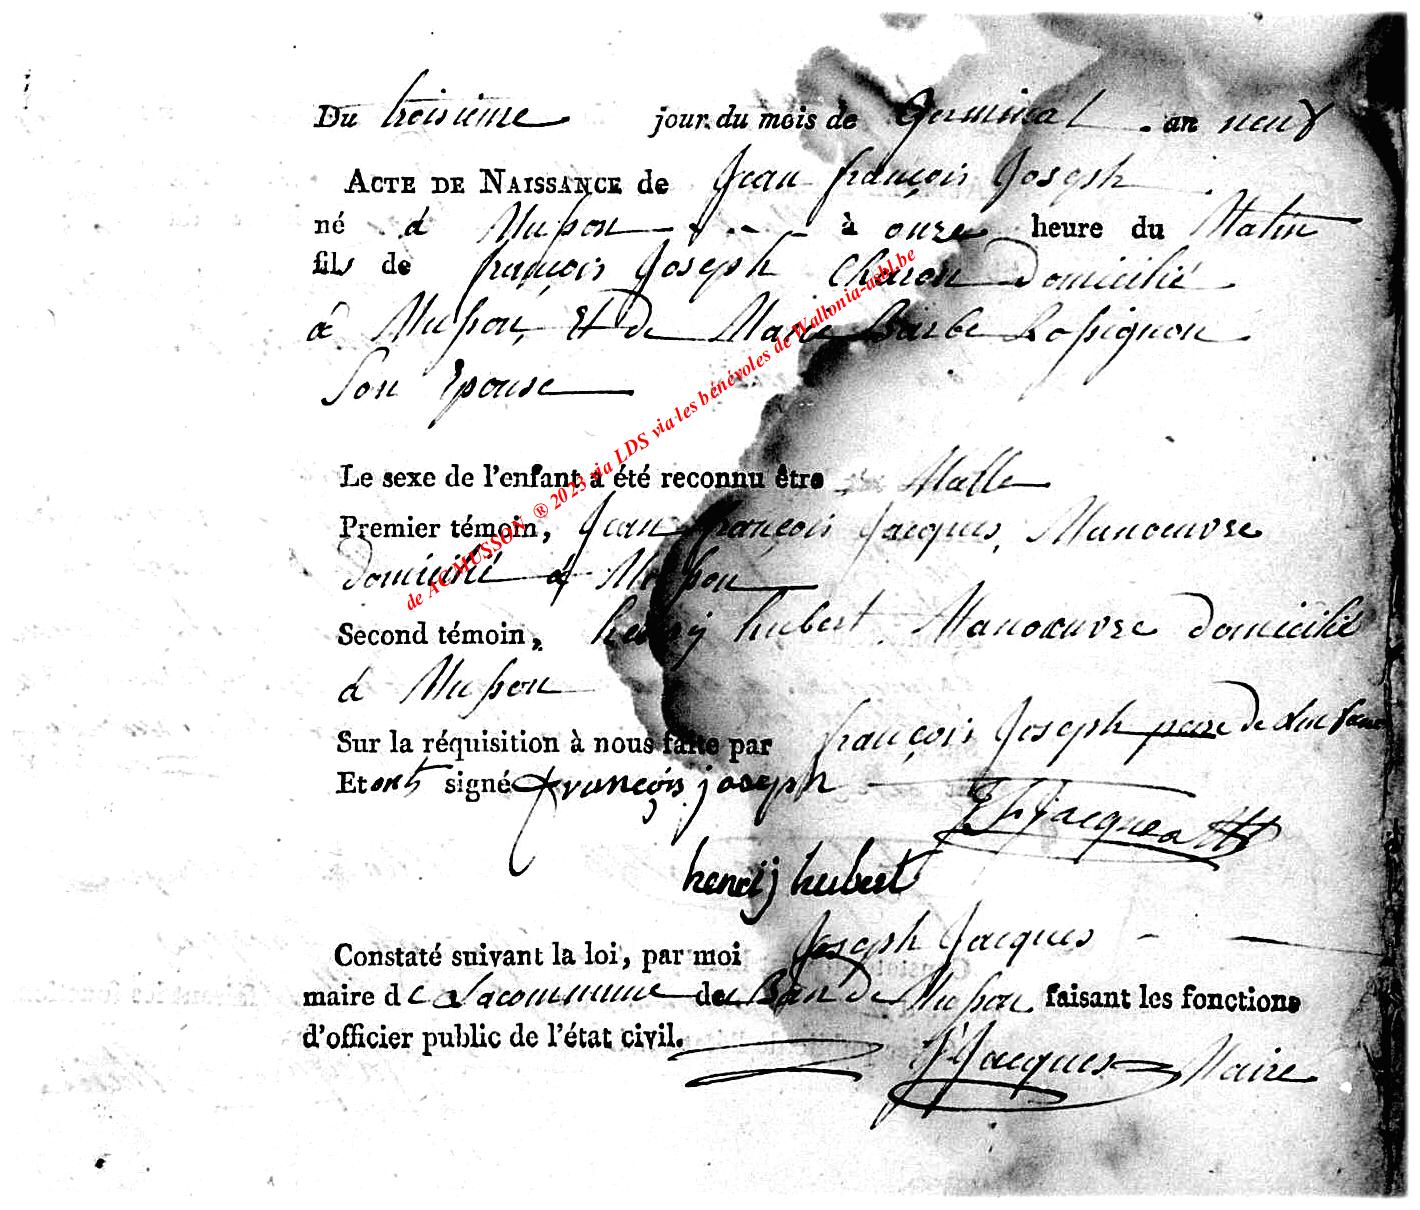 Du troisieme jour du mois de Germinal an neuf
ACTE DE NAISSANCE de Jean françois Joseph
né à Musson à onze heure du Matin
fils de françois Joseph Charon Domicilié
à Musson, Et de Marie Barbe Rossignon
Son Epouse
Le sexe de l'enfant a été reconnu être Malle
Premier témoin, Jean françois Jacques, Manoeuvre
domicilié à Musson
Second témoin, henrij hubert Manoeuvre domicilié
à Musson
Sur la réquisition à nous faite par françois Joseph pere de
Et ont signé françois joseph
J F jacques
henrij hubert
Constaté suivant la loi, par moi Joseph Jacques
maire de La commune de Ban De Musson faisant les fonctions
d'officier public de l'état civil.
J Jacques Maire
de AC MUSSON ® 2023 via LDS via les bénévoles de Wallonia-asbl.be